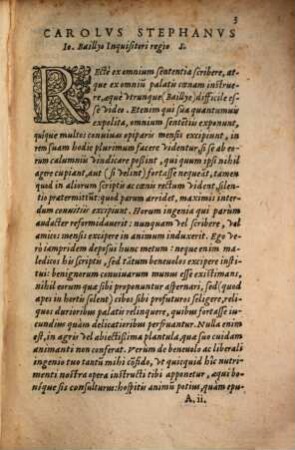 3
CAROLVS STEPHANVS
Io. Baillyo Inquisitori regio S.
RECTE ex omnium sententia scribere, at-
que ex omniũ palato cœnam instrue-
re, æque vtrunque (Baillye) difficile es-
se video. Etenim qui sua quantumuis
expelita, omnium sentẽtiis exponunt,
quíque multos conuiuas epiparis mensis excipiunt, in
rem suam hodie plurimum facere videntur, si se ab eo-
rum calumniis vindicare possint, qui quum ipsi nihil
agere cupiant, aut (si velint) fortasse nequeãt, tamen
quod in aliorum scriptis ac cœnis rectum vident, silen-
tio prætermittũt: quod parum arridet, maximis inter-
dum conuitiis excipiunt. Horum ingenia qui parum
audacter reformidauerit: nunquam vel scribere, vel
amicos mensi excipere in animum induxerit. Ego ve-
rò iampridem deposui hunc metum: neque enim ma-
ledicos his scriptis, sed tãtùm beneuolos excipere insti-
tui: benignorum conuiuarum munus esse existimans,
nihil eorum quæ sibi proponuntur aspernari, sed (quod
apes in hortis solent) cibos sibi profuturos seligere, reli-
quos durioribus palatis relinquere, quibus fortasse iu-
cundius quàm delicatioribus perfruantur. Nulla enim
est, in agris vel abiectissima plantula, quæ suo cuidam
animanti non conferat. Verùm de beneuolo ac liberali
ingenio tuo tantũ mihi cõfido, vt quicquid hîc nutri-
menti nostra opera instructi tibi apponetur, æqui bo-
níque sis consulturus: hospitis animũ potius, quàm epu-
A.ii.